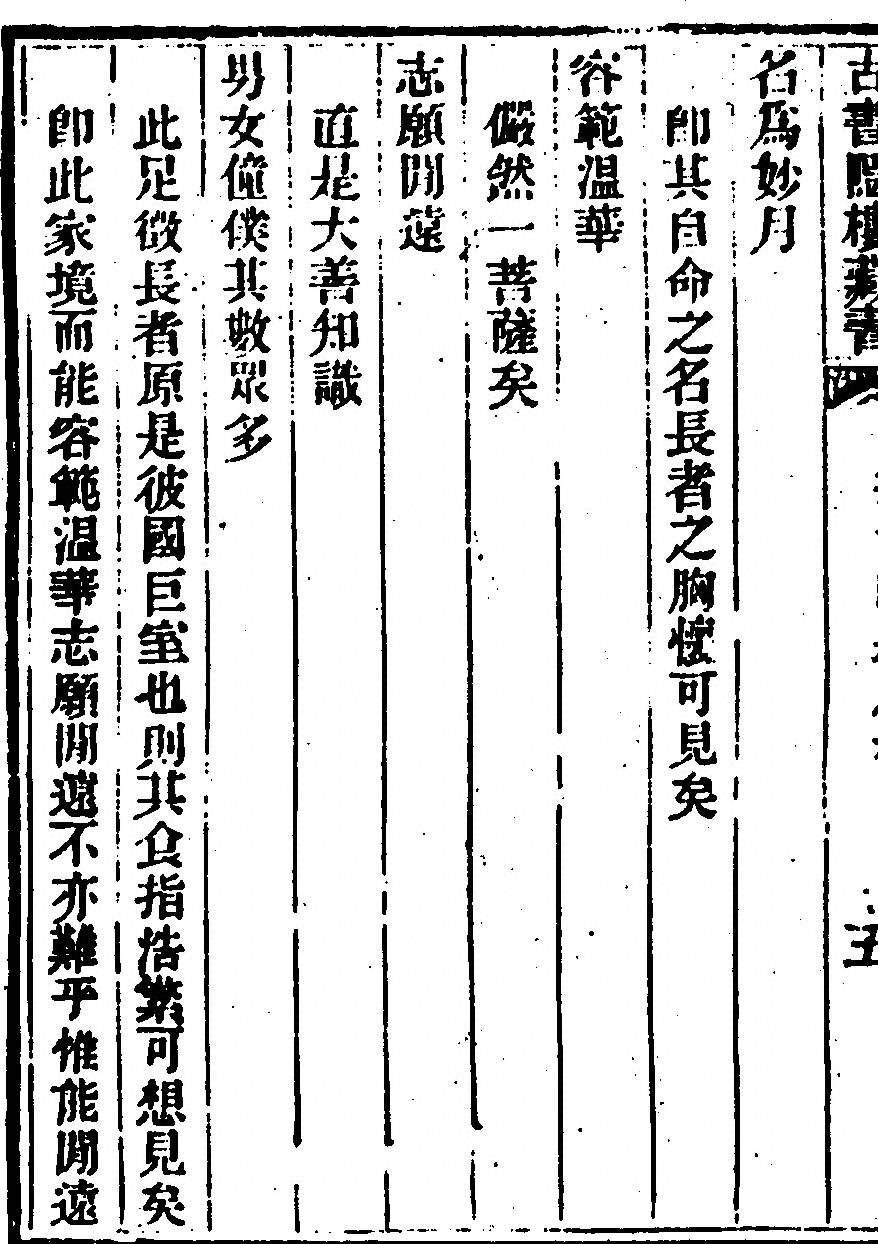 古書隱樓藏書
五
名爲妙月
卽其自命之名長者之胸懷可見矣
容範温華
儼然一菩薩矣
志願閒遠
直是大善知識
男女僮僕其數眾多
此足徵長者原是彼國巨室也則其食指浩繁可想見矣
卽此家境而能容範温華志願閒遠不亦難乎惟能閒遠